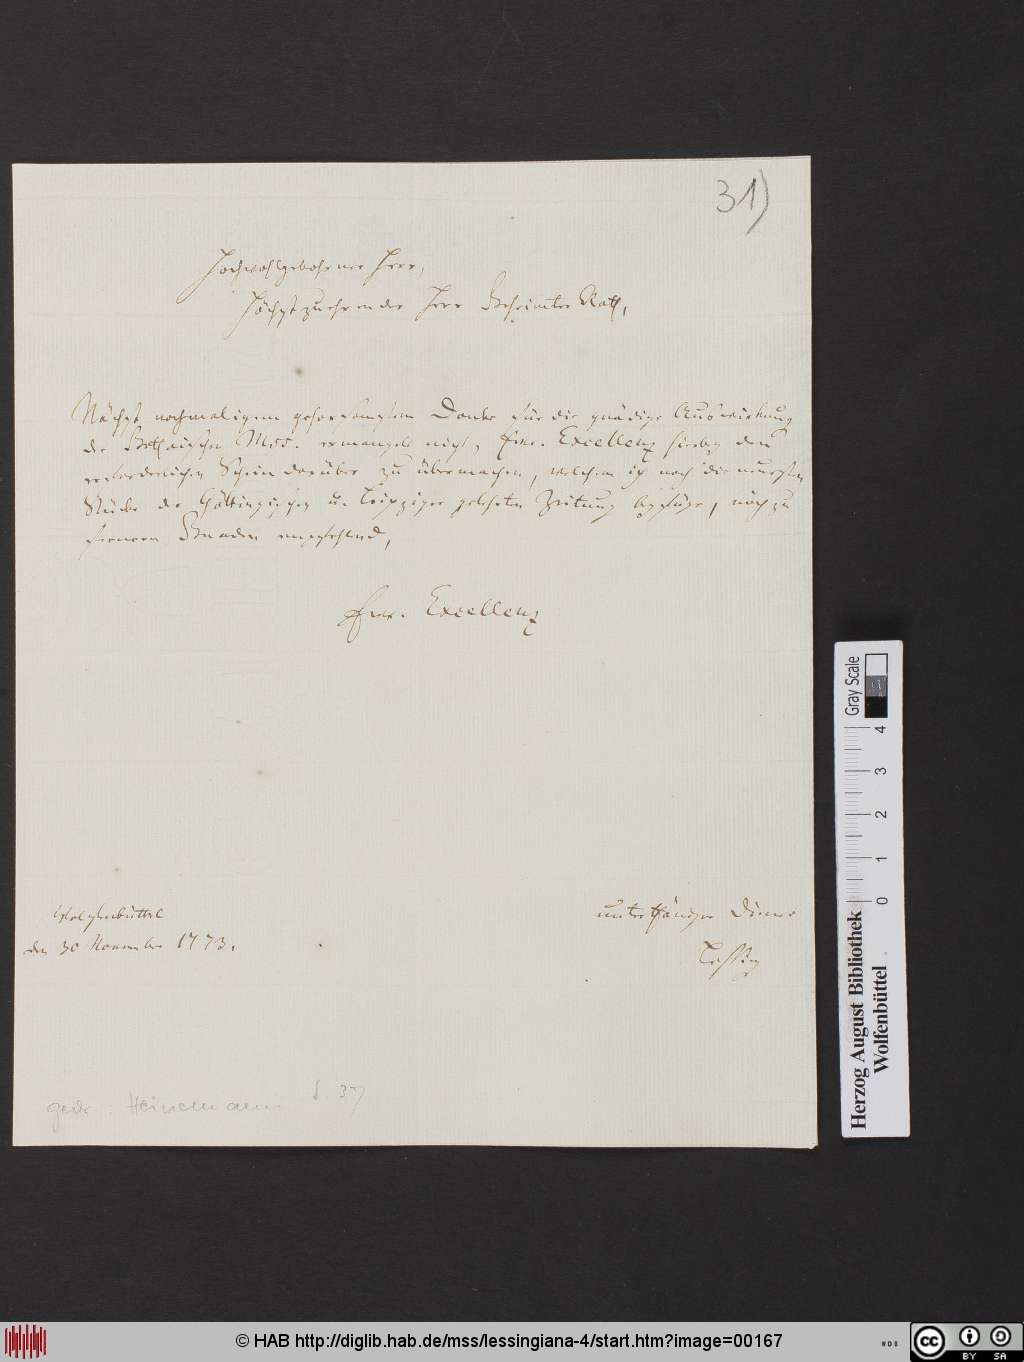 31)
Hochwohlgebohrner Herr,
Höchstzuehrender Herr Geheimter Rath,
Nächst nochmaligem gehorsamsten Danke für die gnädige Auswirkung
der Mss. ermangle nicht, Ewr. Excellenz hierbey den
erforderlichen Schein darüber zu übermachen, welchem ich noch die neuesten
Stücke der Göttingischen u. Leipziger gelehrten Zeitung beyfüge, mich zu
fernern Gnaden empfehlend,
Ewr. Excellenz
Wolfenbüttel
den 30 November 1773.
unterthäniger Diener
Lessing
gedr: Heinemann S. 37
Gray Scale
0 1 2 3 4
Herzog August Bibliothek
Wolfenbüttel
© HAB http://diglib.hab.de/mss/lessingiana-4/start.htm?image=00167
cc BY SA